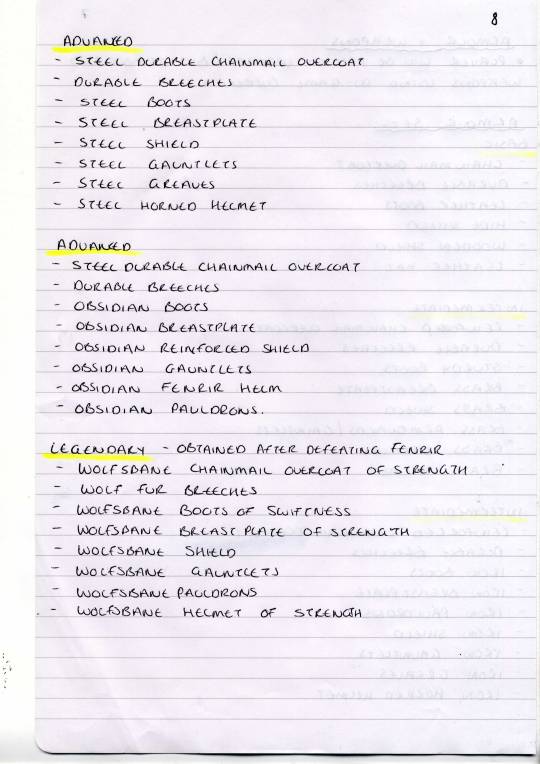 8
ADVANCED
- STEEL DURABLE CHAINMAIL OVERCOAT
- DURABLE BREECHES
- STEEL BOOTS
- STEEL BREASTPLATE
- STEEL SHIELD
- STEEL GAUNTLETS
- STEEL GREAVES
- STEEL HORNED HELMET
ADVANCED
- STEEL DURABLE CHAINMAIL OVERCOAT
- DURABLE BREECHES
- OBSIDIAN BOOTS
- OBSIDIAN BREASTPLATE
- OBSIDIAN REINFORCED SHIELD
- OBSIDIAN GAUNTLETS
- OBSIDIAN FENRIR HELM
- OBSIDIAN PAULDRONS.
LEGENDARY - OBTAINED AFTER DEFEATING FENRIR
- WOLFSBANE CHAINMAIL OVERCOAT OF STRENGTH
- WOLF FUR BREECHES
- WOLFSBANE BOOTS OF SWIFTNESS
- WOLFSBANE BREAST PLATE OF STRENGTH
- WOLFSBANE SHIELD
- WOLFSBANE GAUNTLETS
- WOLFSBANE PAULDRONS
- WOLFSBANE HELMET OF STRENGTH